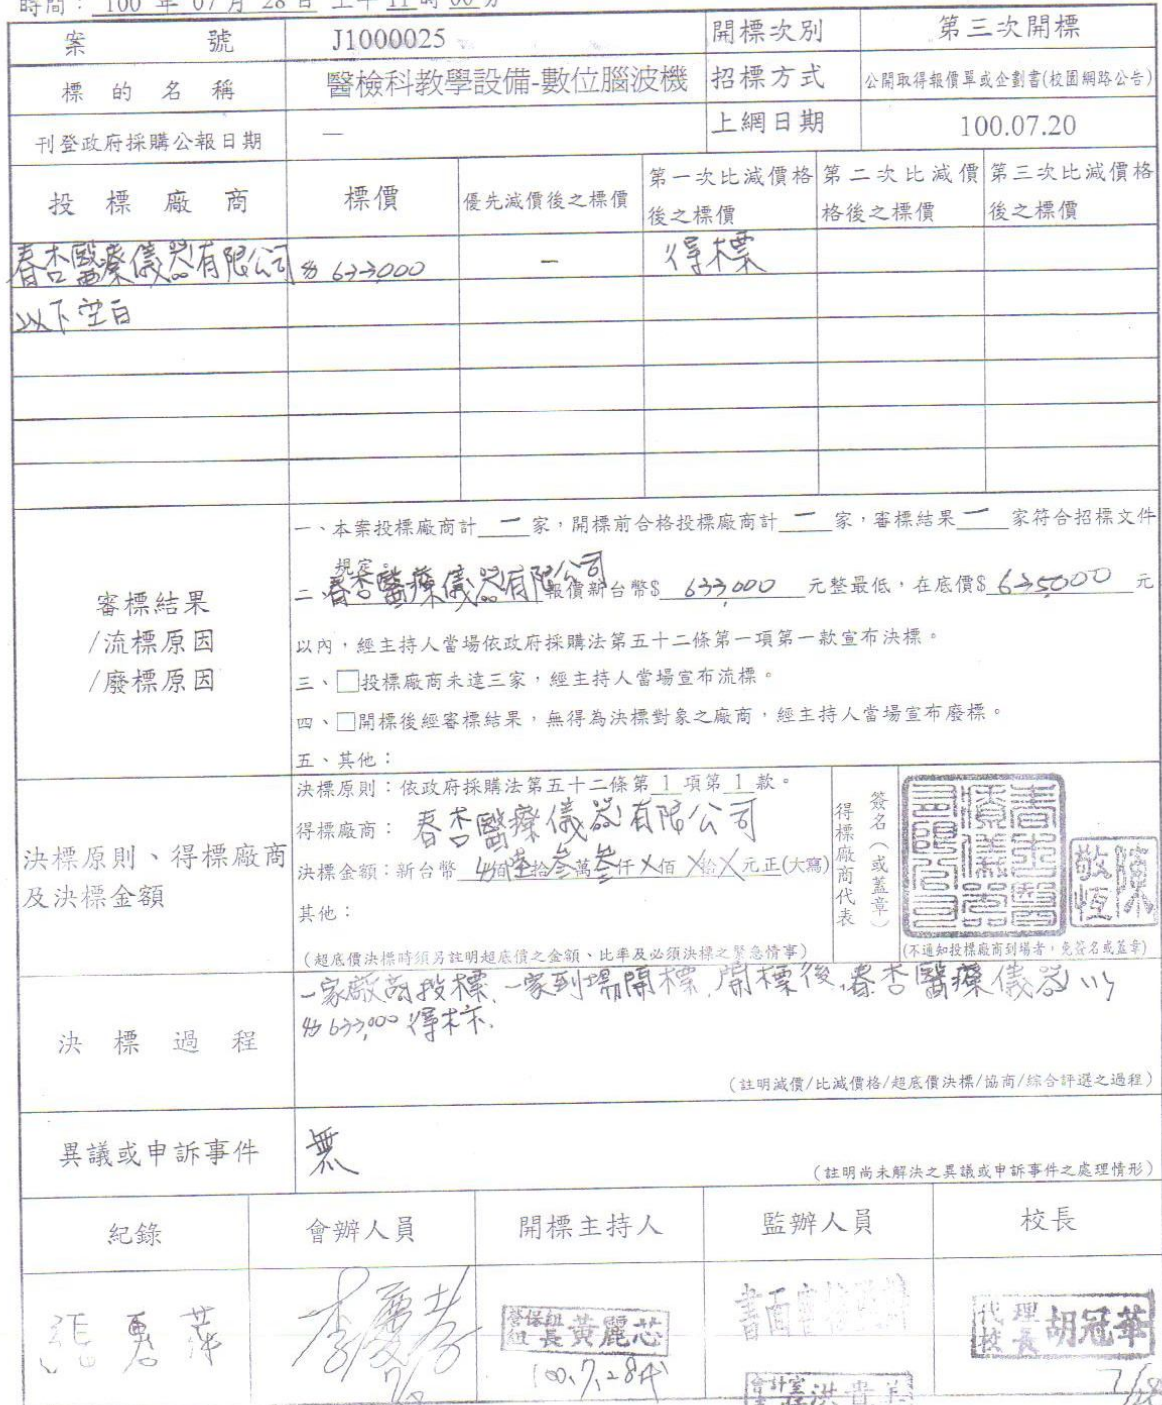 時間： 100 年 07 月 28 日 上午 11 時 00 分
案 號 J1000025 開標次別 第三次開標
標 的 名 稱 醫檢科教學設備-數位腦波機 招標方式 公開取得報價單或企劃書(校園網路公告)
刊登政府採購公報日期 — 上網日期 100.07.20
投 標 廠 商 標價 優先減價後之標價 第一次比減價格後之標價 第二次比減價格後之標價 第三次比減價格後之標價
春杏醫療儀器有限公司 $ 633,000 — 得標
以下空白
審標結果
/流標原因
/廢標原因
一、本案投標廠商計 一 家，開標前合格投標廠商計 一 家，審標結果 一 家符合招標文件
規定。
二、春杏醫療儀器有限公司 報價新台幣$ 633,000 元整最低，在底價$ 635000 元
以內，經主持人當場依政府採購法第五十二條第一項第一款宣布決標。
三、□投標廠商未達三家，經主持人當場宣布流標。
四、□開標後經審標結果，無得為決標對象之廠商，經主持人當場宣布廢標。
五、其他：
決標原則、得標廠商
及決標金額
決標原則：依政府採購法第五十二條第 1 項第 1 款。
得標廠商： 春杏醫療儀器有限公司
決標金額：新台幣 佰陸拾參萬參仟X佰X拾X元正(大寫)
其他：
(超底價決標時須另註明超底價之金額、比率及必須決標之緊急情事)
得標廠商代表
簽名（或蓋章）
陳敬恆
(不通知投標廠商到場者，免簽名或蓋章)
決 標 過 程
一家廠商投標,一家到場開標,開標後,春杏醫療儀器以
$633,000得標.
(註明減價/比減價格/超底價決標/協商/綜合評選之過程)
異議或申訴事件 無
(註明尚未解決之異議或申訴事件之處理情形)
紀錄 會辦人員 開標主持人 監辦人員 校長
營保組
組長黃麗芯
100.7.28
書面審核監辦
會計室
代理
校長 胡冠華
7/28